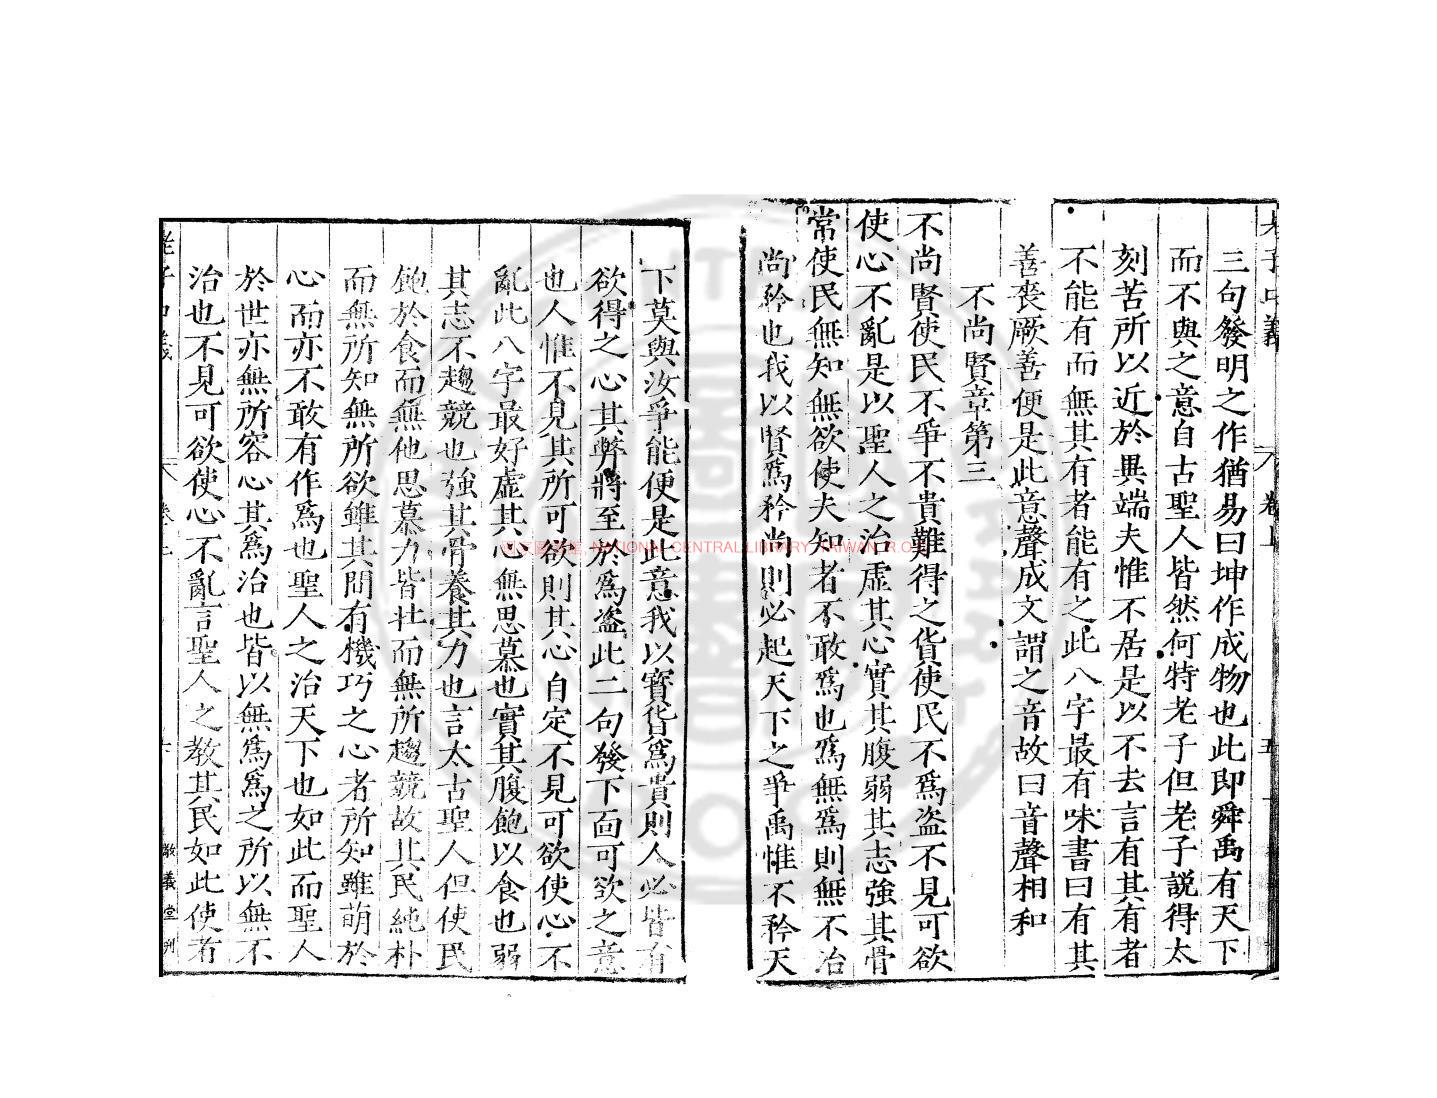 三句發明之作猶易曰坤作成物也此即舜禹有天下
而不與之意自古聖人皆然何特老子但老子說得太
刻苦所以近於異端夫惟不居是以不去言有其有者
不能有而無其有者能有之此八字最有味書曰有其
善喪厥善便是此意聲成文謂之音故曰音聲相和
不尚賢章第三
不尚賢使民不爭不貴難得之貨使民不為盜不見可欲
使心不亂是以聖人之治虛其心實其腹弱其志強其骨
常使民無知無欲使夫知者不敢為也為無為則無不治
尚矜也我以賢為矜尚則必起天下之爭禹惟不矜天
下莫與汝爭能便是此意我以寶貨為貴則人必皆有
欲得之心其弊將至於為盜此二句發下面可欲之意
也人惟不見其所可欲則其心自定不見可欲使心不
亂此八字最好虛其心無思慕也實其腹飽以食也弱
其志不趨競也強其骨養其力也言太古聖人但使民
飽於食而無他思慕力皆壯而無所趨競故其民純朴
而無所知無所欲雖其間有機巧之心者所知雖萌於
心而亦不敢有作為也聖人之治天下也如此而聖人
於世亦無所容心其為治也皆以無為為之所以無不
治也不見可欲使心不亂言聖人之教其民如此使有
老子口義
卷上
五
敬義堂刊
國家圖書館, NATIONAL CENTRAL LIBRARY, TAIWAN, R.O.C